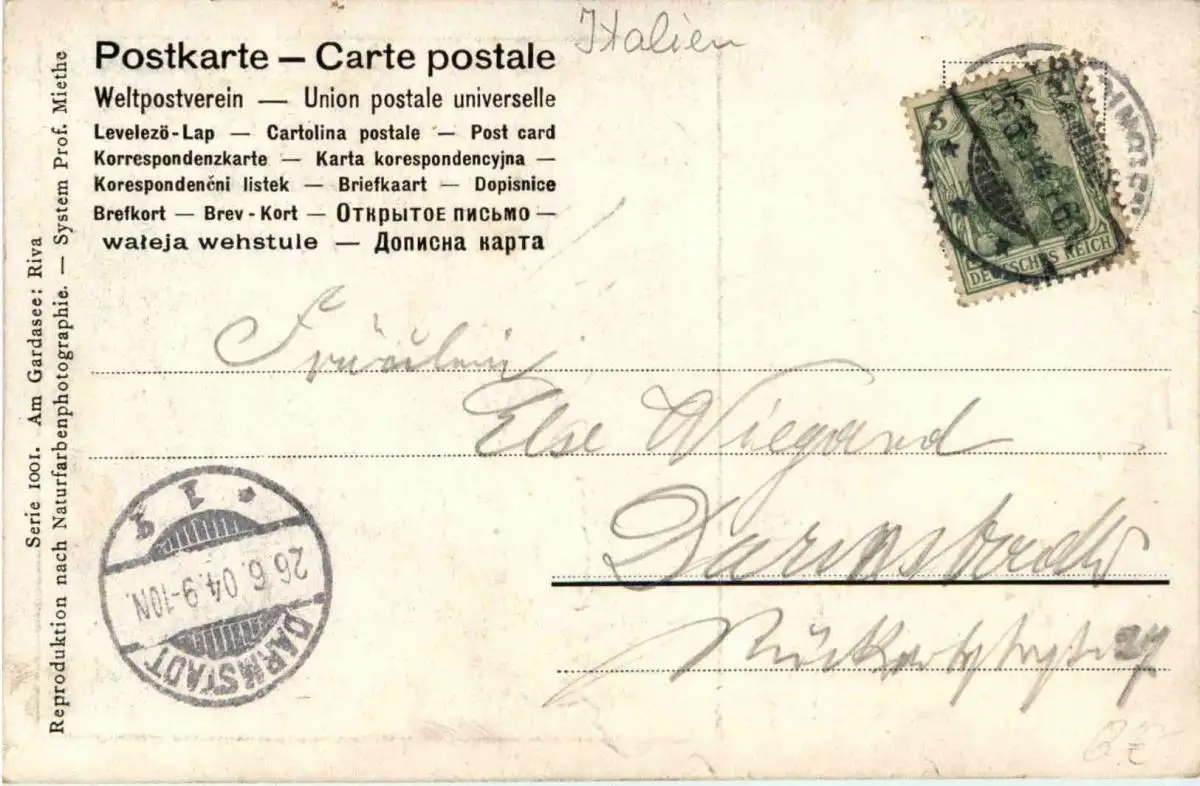 Italien
Postkarte — Carte postale
Weltpostverein — Union postale universelle
Levelezö-Lap — Cartolina postale — Post card
Korrespondenzkarte — Karta korespondencyjna —
Korespondenčni listek — Briefkaart — Dopisnice
Brefkort — Brev-Kort — Открытое письмо —
wałeja wehstule — Дописна карта
5
DEUTSCHES REICH
Fräulein
Else Wiegand
Darmstadt
Rückertstr. 27
DARMSTADT
26.6.04.9-10N.
* 1
Serie 1001. Am Gardasee: Riva
Reproduktion nach Naturfarbenphotographie. — System Prof. Miethe